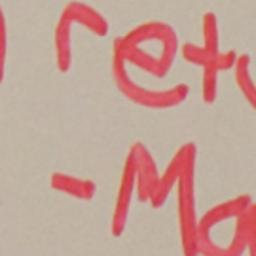 ret
- Ma